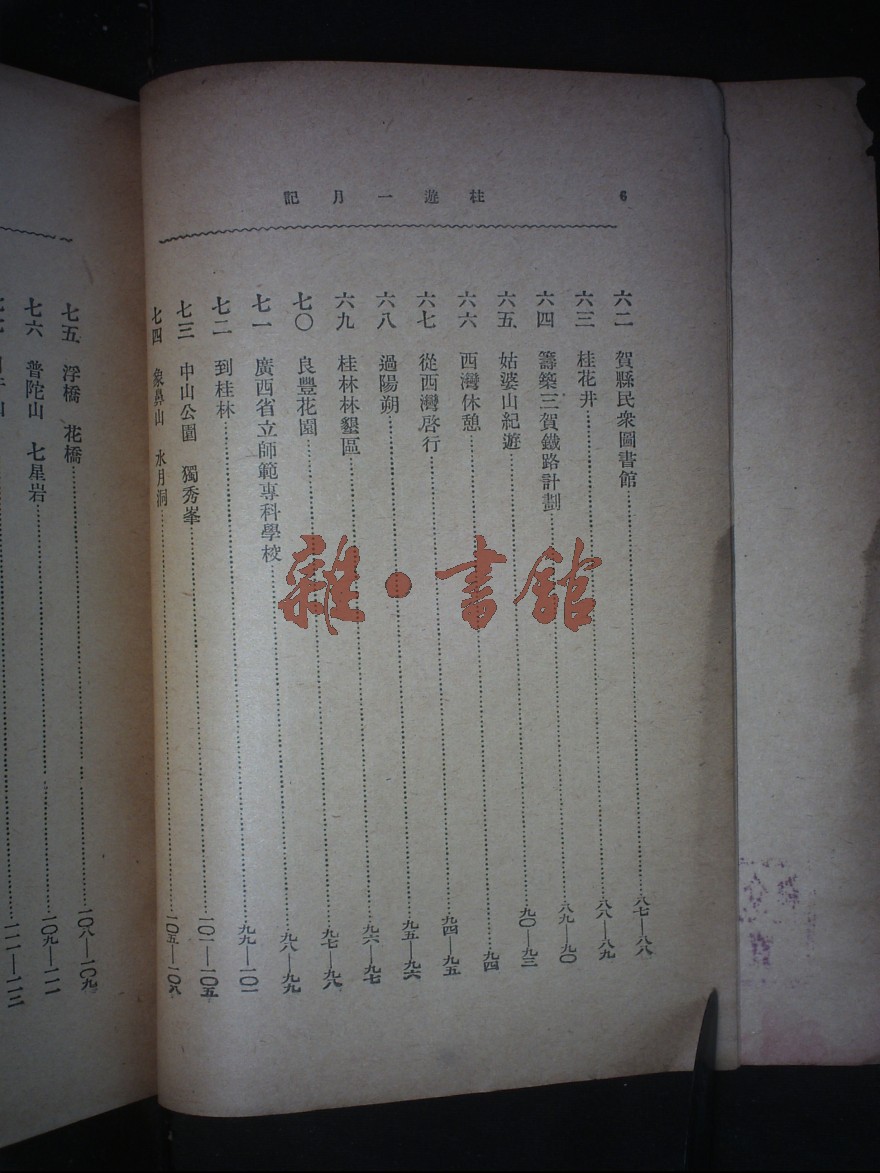 桂遊一月記 6
六二 賀縣民衆圖書館 八七—八八
六三 桂花井 八八—八九
六四 籌築三賀鐵路計劃 八九—九〇
六五 姑婆山紀遊 九〇—九三
六六 西灣休憩 九四
六七 從西灣啓行 九四—九五
六八 過陽朔 九五—九六
六九 桂林林墾區 九六—九七
七〇 良豐花園 九七—九八
七一 廣西省立師範專科學校 九八—九九
七二 到桂林 九九—一〇一
七三 中山公園 獨秀峯 一〇一—一〇五
七四 象鼻山 水月洞 一〇五—一〇八
七五 浮橋 花橋 一〇八—一〇九
七六 普陀山 七星岩 一〇九—一一一
一一一—一一三
雜·書館